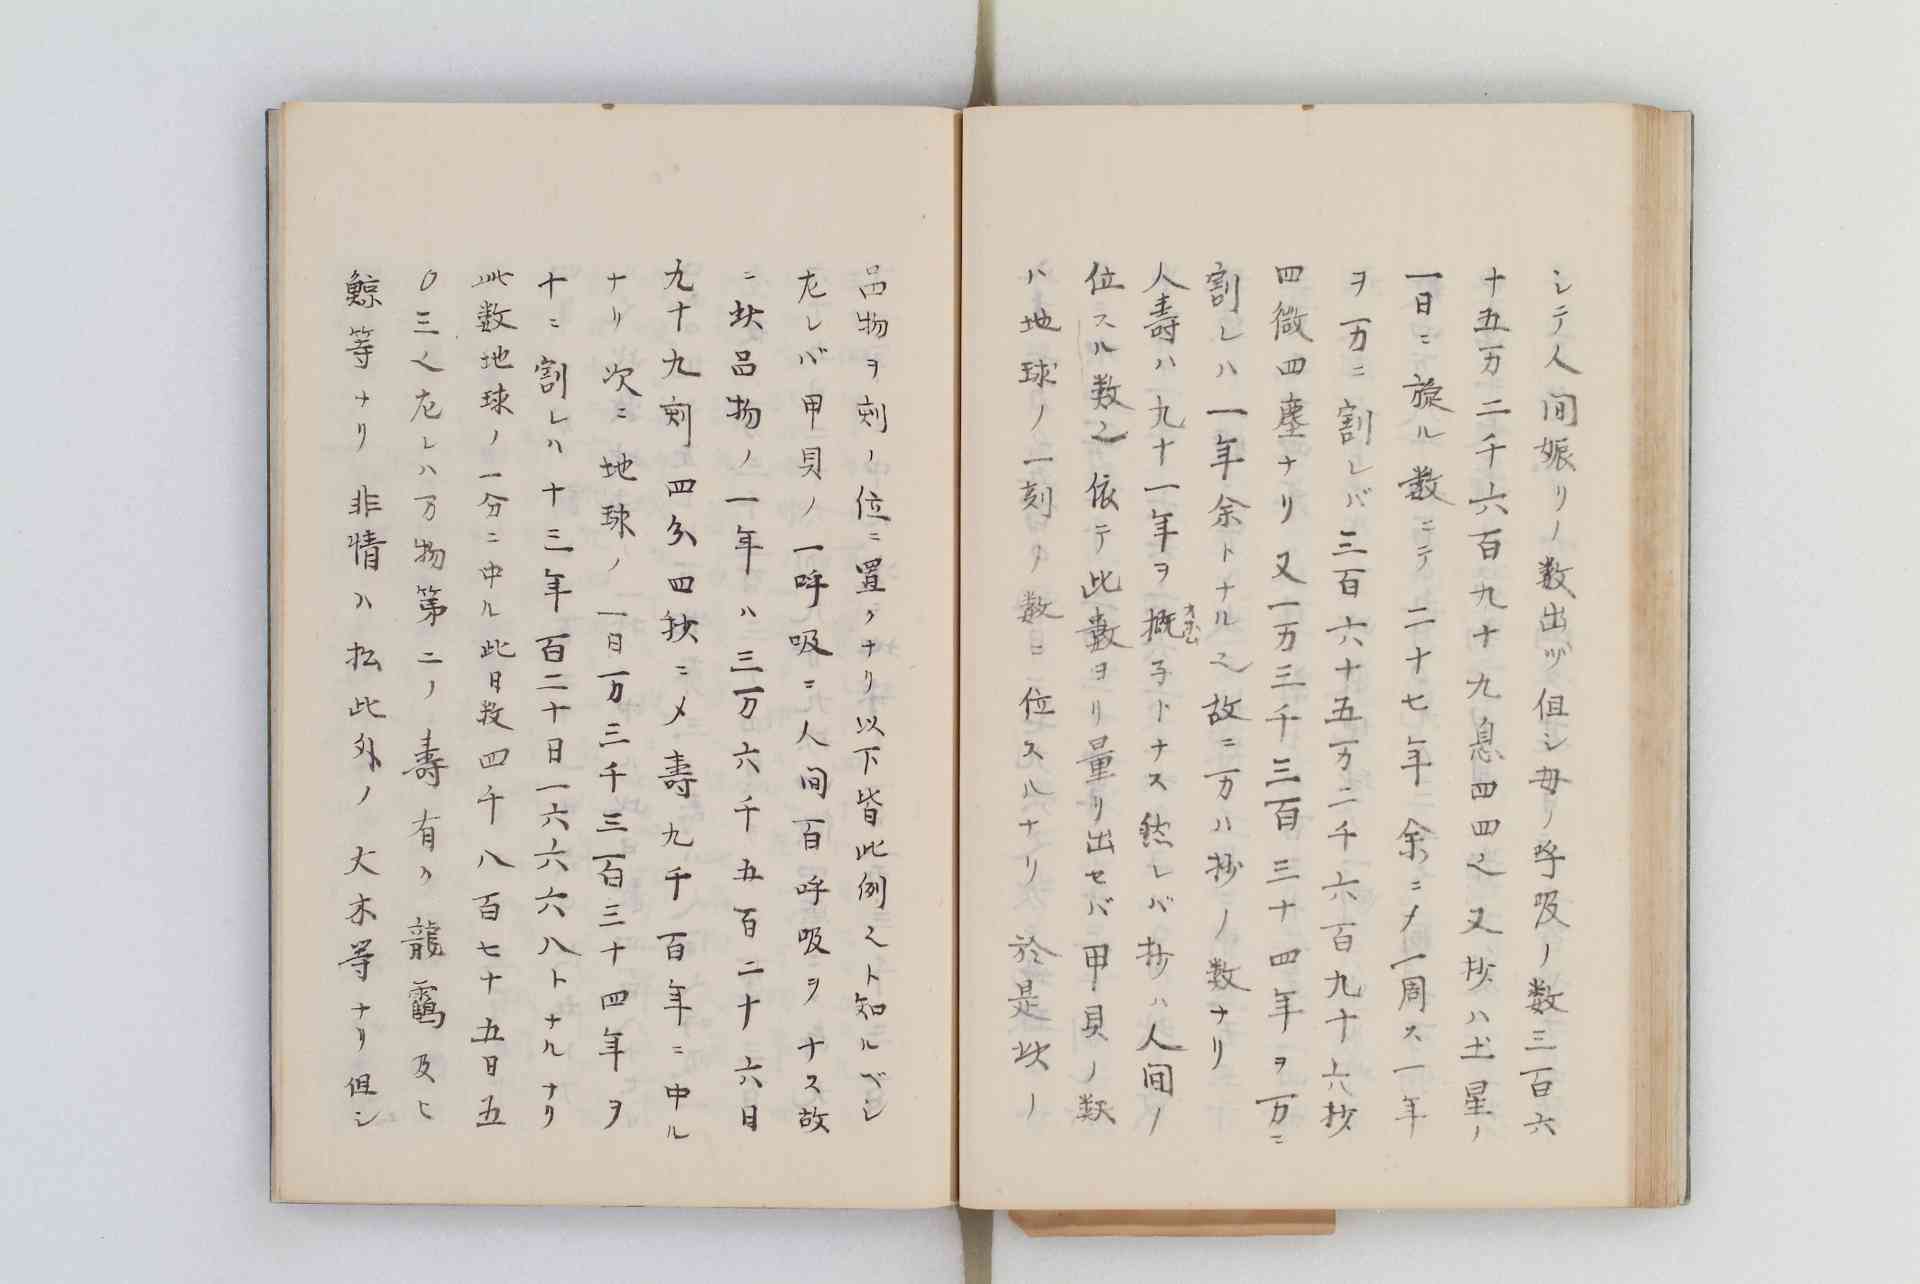 シテ人間娠リノ数出ヅ但シ毎ノ呼吸ノ数三百六
十五万二千六百九十九息四四〻又抄ハ土星ノ
一日ニ旋ル数ニテ二十七年余ニ〆一周ス一年
ヲ一万ニ割レバ三百六十五万二千六百九十六抄
四微四塵ナリ又一万三千三百三十四年ヲ一万ニ
割レハ一年余トナル之故ニ一万ハ抄ノ数ナリ
人壽ハ九十一年ヲ概子トナス然レバ抄ハ人間ノ
位スル数之依テ此數ヨリ量リ出セバ甲貝ノ数
ハ地球ノ一刻ノ数ニ位スルナリ於是坎ノ
品物ヲ刻ノ位ニ置クナリ以下皆此例之ト知ルベシ
左レバ甲貝ノ一呼吸ニ人間百呼吸ヲナス故
ニ坎品物ノ一年ハ三万六千五百二十六日
九十九刻四分四秒ニ〆壽九千百年ニ中ル
ナリ次ニ地球ノ一日一万三千三百三十四年ヲ
十ニ割レハ十三年百二十日一六六六八トナルナリ
此数地球ノ一分ニ中ル此日数四千八百七十五日五
〇三〻左レハ万物第二ノ壽有ク龍靏及ヒ
鯨等ナリ非情ハ松此外ノ大木等ナリ但シ